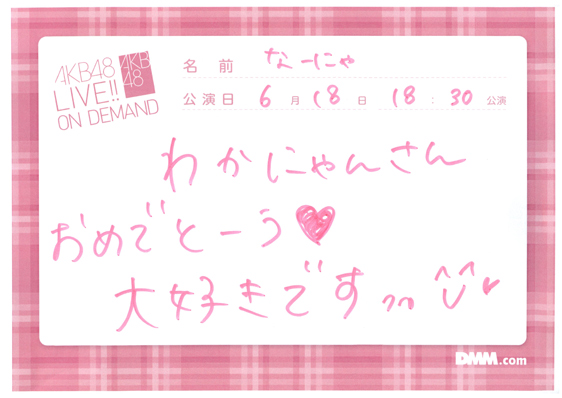 AKB48
LIVE!!
ON DEMAND
AKB
48
名前 なーにゃ
公演日 6月18日 18:30公演
わかにゃんさん
おめでとーう♥
大好きです
DMM.com